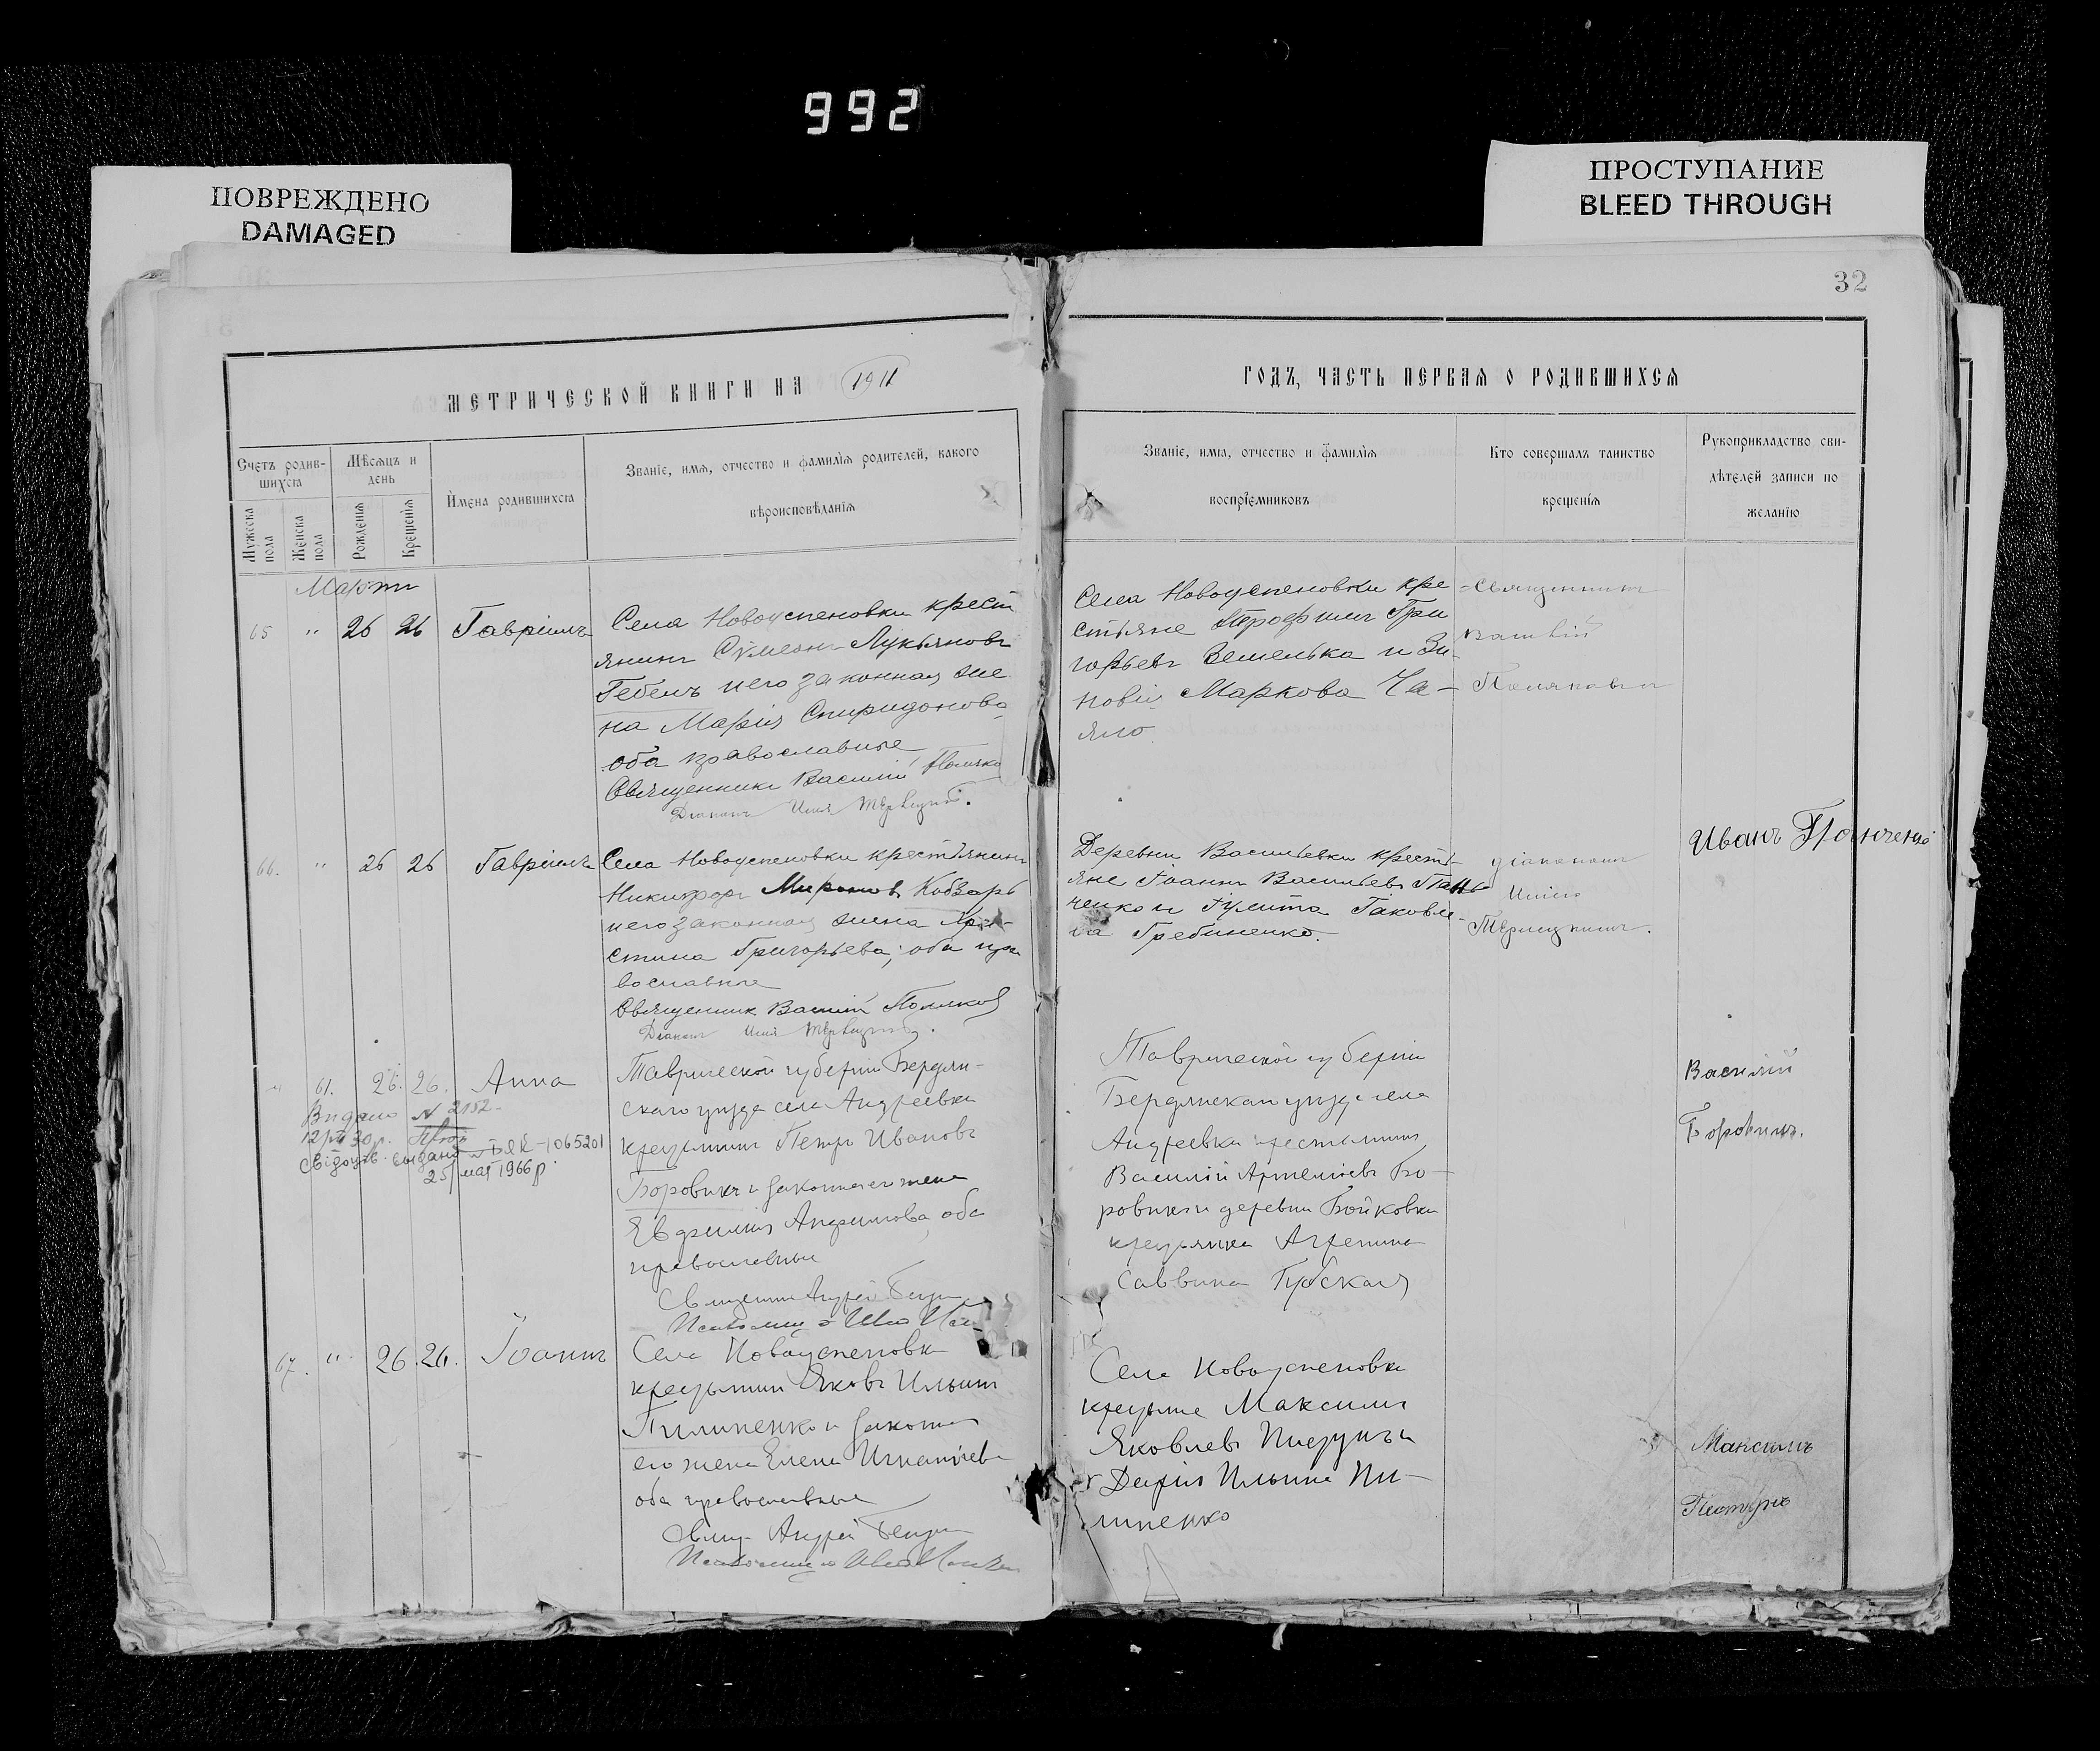 992
ПОВРЕЖДЕНО
DAMAGED
ПРОСТУПАНИЕ
BLEED THROUGH
32
МЕТРИЧЕСКОЙ КНИГИ НА 1911
ГОДЪ, ЧАСТЬ ПЕРВАЯ О РОДИВШИХСЯ
Счетъ родившихся
Мужеска пола
Женска пола
Мѣсяцъ и день
Рожденія
Крещенія
Имена родившихся
Званіе, имя, отчество и фамилія родителей, какого
вѣроисповѣданія
Званіе, имя, отчество и фамилія
воспріемниковъ
Кто совершалъ таинство
крещенія
Рукоприкладство сви-
дѣтелей записи по
желанію
Мартъ
65 " 26 26 Гавріилъ
Села Новоуспеновки крест
янинъ Сѵмеонъ Лукьяновъ
Гебель и его законная же
на Марія Спиридонова
оба православные
Священникъ Василій Поляко
Діаконъ Илія
Села Новоуспеновки кре
стьяне Трофимъ Гри
горьевъ Вемелька и Зи
новія Маркова Ча-
яло
Священникъ
Василій
Поляковъ
66. " 26 26 Гавріилъ
Села Новоуспеновки крестьянинъ
Никифоръ Мироновъ Кобзарь
и его законная жена Хри-
стина Григорьева; оба пра
вославные
Священник Василій Поляковъ
Діаконъ Илія
Деревни Васильевки кресть-
яне Іоаннъ Васильевъ Пан
ченко и Іулита Іаковле-
ва Гребиненко.
діакономъ
Иліею
Иванъ Панченко
61. 26. 26. Анна
Видано N 2152
12/VII 30 р.
Свідоцтв. выдано
25/мая 1966 р.
Таврической губерніи Бердян-
скаго уѣзда села Андреевки
крестьянинъ Петръ Ивановъ
Боровикъ и законная его жена
Евфимія оба
православные
Священникъ Андрей
Таврической губерніи
Бердянскаго уѣзда села
Андреевки крестьянинъ
Василій Артемьевъ Бо-
ровикъ и деревни Бойковки
крестьянка Агрепина
Саввина Губская
Василій
Боровикъ.
67. " 26. 26. Іоаннъ
Села Новоуспеновки
крестьянинъ Яковъ Ильинъ
Пилипенко и законная
его жена Елена Игнатіева
оба православные
Свящ. Андрей
Села Новоуспеновки
крестьяне Максимъ
Яковлевъ
и Дарія Ильина Пи-
липенко
Максимъ